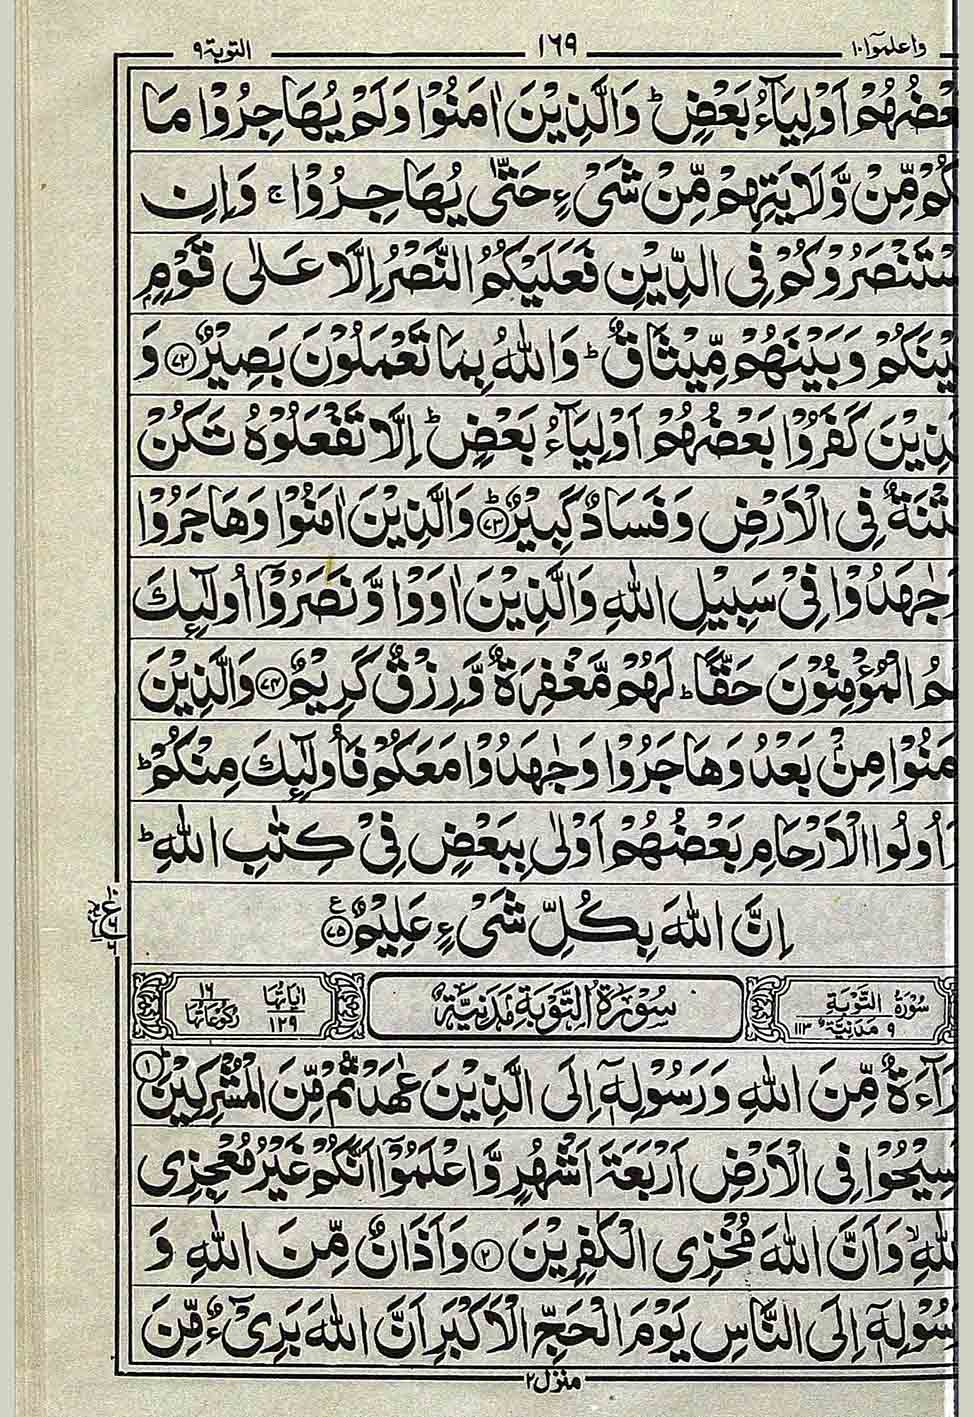 واعلموۤا ١٠
١٦٩
التوبة ٩
بَعْضُهُمْ اَوْلِيَآءُ بَعْضٍ ؕ وَالَّذِيْنَ اٰمَنُوْا وَلَمْ يُهَاجِرُوْا مَا
لَكُمْ مِّنْ وَّلَايَتِهِمْ مِّنْ شَىْءٍ حَتّٰى يُهَاجِرُوْا ۚ وَاِنِ
اسْتَنْصَرُوْكُمْ فِى الدِّيْنِ فَعَلَيْكُمُ النَّصْرُ اِلَّا عَلٰى قَوْمٍۭ
بَيْنَكُمْ وَبَيْنَهُمْ مِّيْثَاقٌ ؕ وَاللّٰهُ بِمَا تَعْمَلُوْنَ بَصِيْرٌ ﴿٧٢﴾ وَ
الَّذِيْنَ كَفَرُوْا بَعْضُهُمْ اَوْلِيَآءُ بَعْضٍ ؕ اِلَّا تَفْعَلُوْهُ تَكُنْ
فِتْنَةٌ فِى الْاَرْضِ وَفَسَادٌ كَبِيْرٌ ؕ﴿٧٣﴾ وَالَّذِيْنَ اٰمَنُوْا وَهَاجَرُوْا
وَجٰهَدُوْا فِىْ سَبِيْلِ اللّٰهِ وَالَّذِيْنَ اٰوَوْا وَّنَصَرُوْۤا اُولٰٓئِكَ
هُمُ الْمُؤْمِنُوْنَ حَقًّا ؕ لَهُمْ مَّغْفِرَةٌ وَّرِزْقٌ كَرِيْمٌ ﴿٧٤﴾ وَالَّذِيْنَ
اٰمَنُوْا مِنْۢ بَعْدُ وَهَاجَرُوْا وَجٰهَدُوْا مَعَكُمْ فَاُولٰٓئِكَ مِنْكُمْ ؕ
وَاُولُوا الْاَرْحَامِ بَعْضُهُمْ اَوْلٰى بِبَعْضٍ فِىْ كِتٰبِ اللّٰهِ ؕ
اِنَّ اللّٰهَ بِكُلِّ شَىْءٍ عَلِيْمٌ ﴿٧٥﴾ ع
سُوْرَةُ التَّوْبَةِ ٩ مَدَنِيَّةٌ ١١٣
سُوْرَةُ التَّوْبَةِ مَدَنِيَّةٌ
اٰيَاتُهَا ١٢٩ رُكُوْعَاتُهَا ١٦
بَرَآءَةٌ مِّنَ اللّٰهِ وَرَسُوْلِهٖۤ اِلَى الَّذِيْنَ عٰهَدْتُّمْ مِّنَ الْمُشْرِكِيْنَ ؕ﴿١﴾
فَسِيْحُوْا فِى الْاَرْضِ اَرْبَعَةَ اَشْهُرٍ وَّاعْلَمُوْۤا اَنَّكُمْ غَيْرُ مُعْجِزِى
اللّٰهِ ۙ وَاَنَّ اللّٰهَ مُخْزِى الْكٰفِرِيْنَ ﴿٢﴾ وَاَذَانٌ مِّنَ اللّٰهِ وَ
رَسُوْلِهٖۤ اِلَى النَّاسِ يَوْمَ الْحَجِّ الْاَكْبَرِ اَنَّ اللّٰهَ بَرِىْٓءٌ مِّنَ
منزل ٢